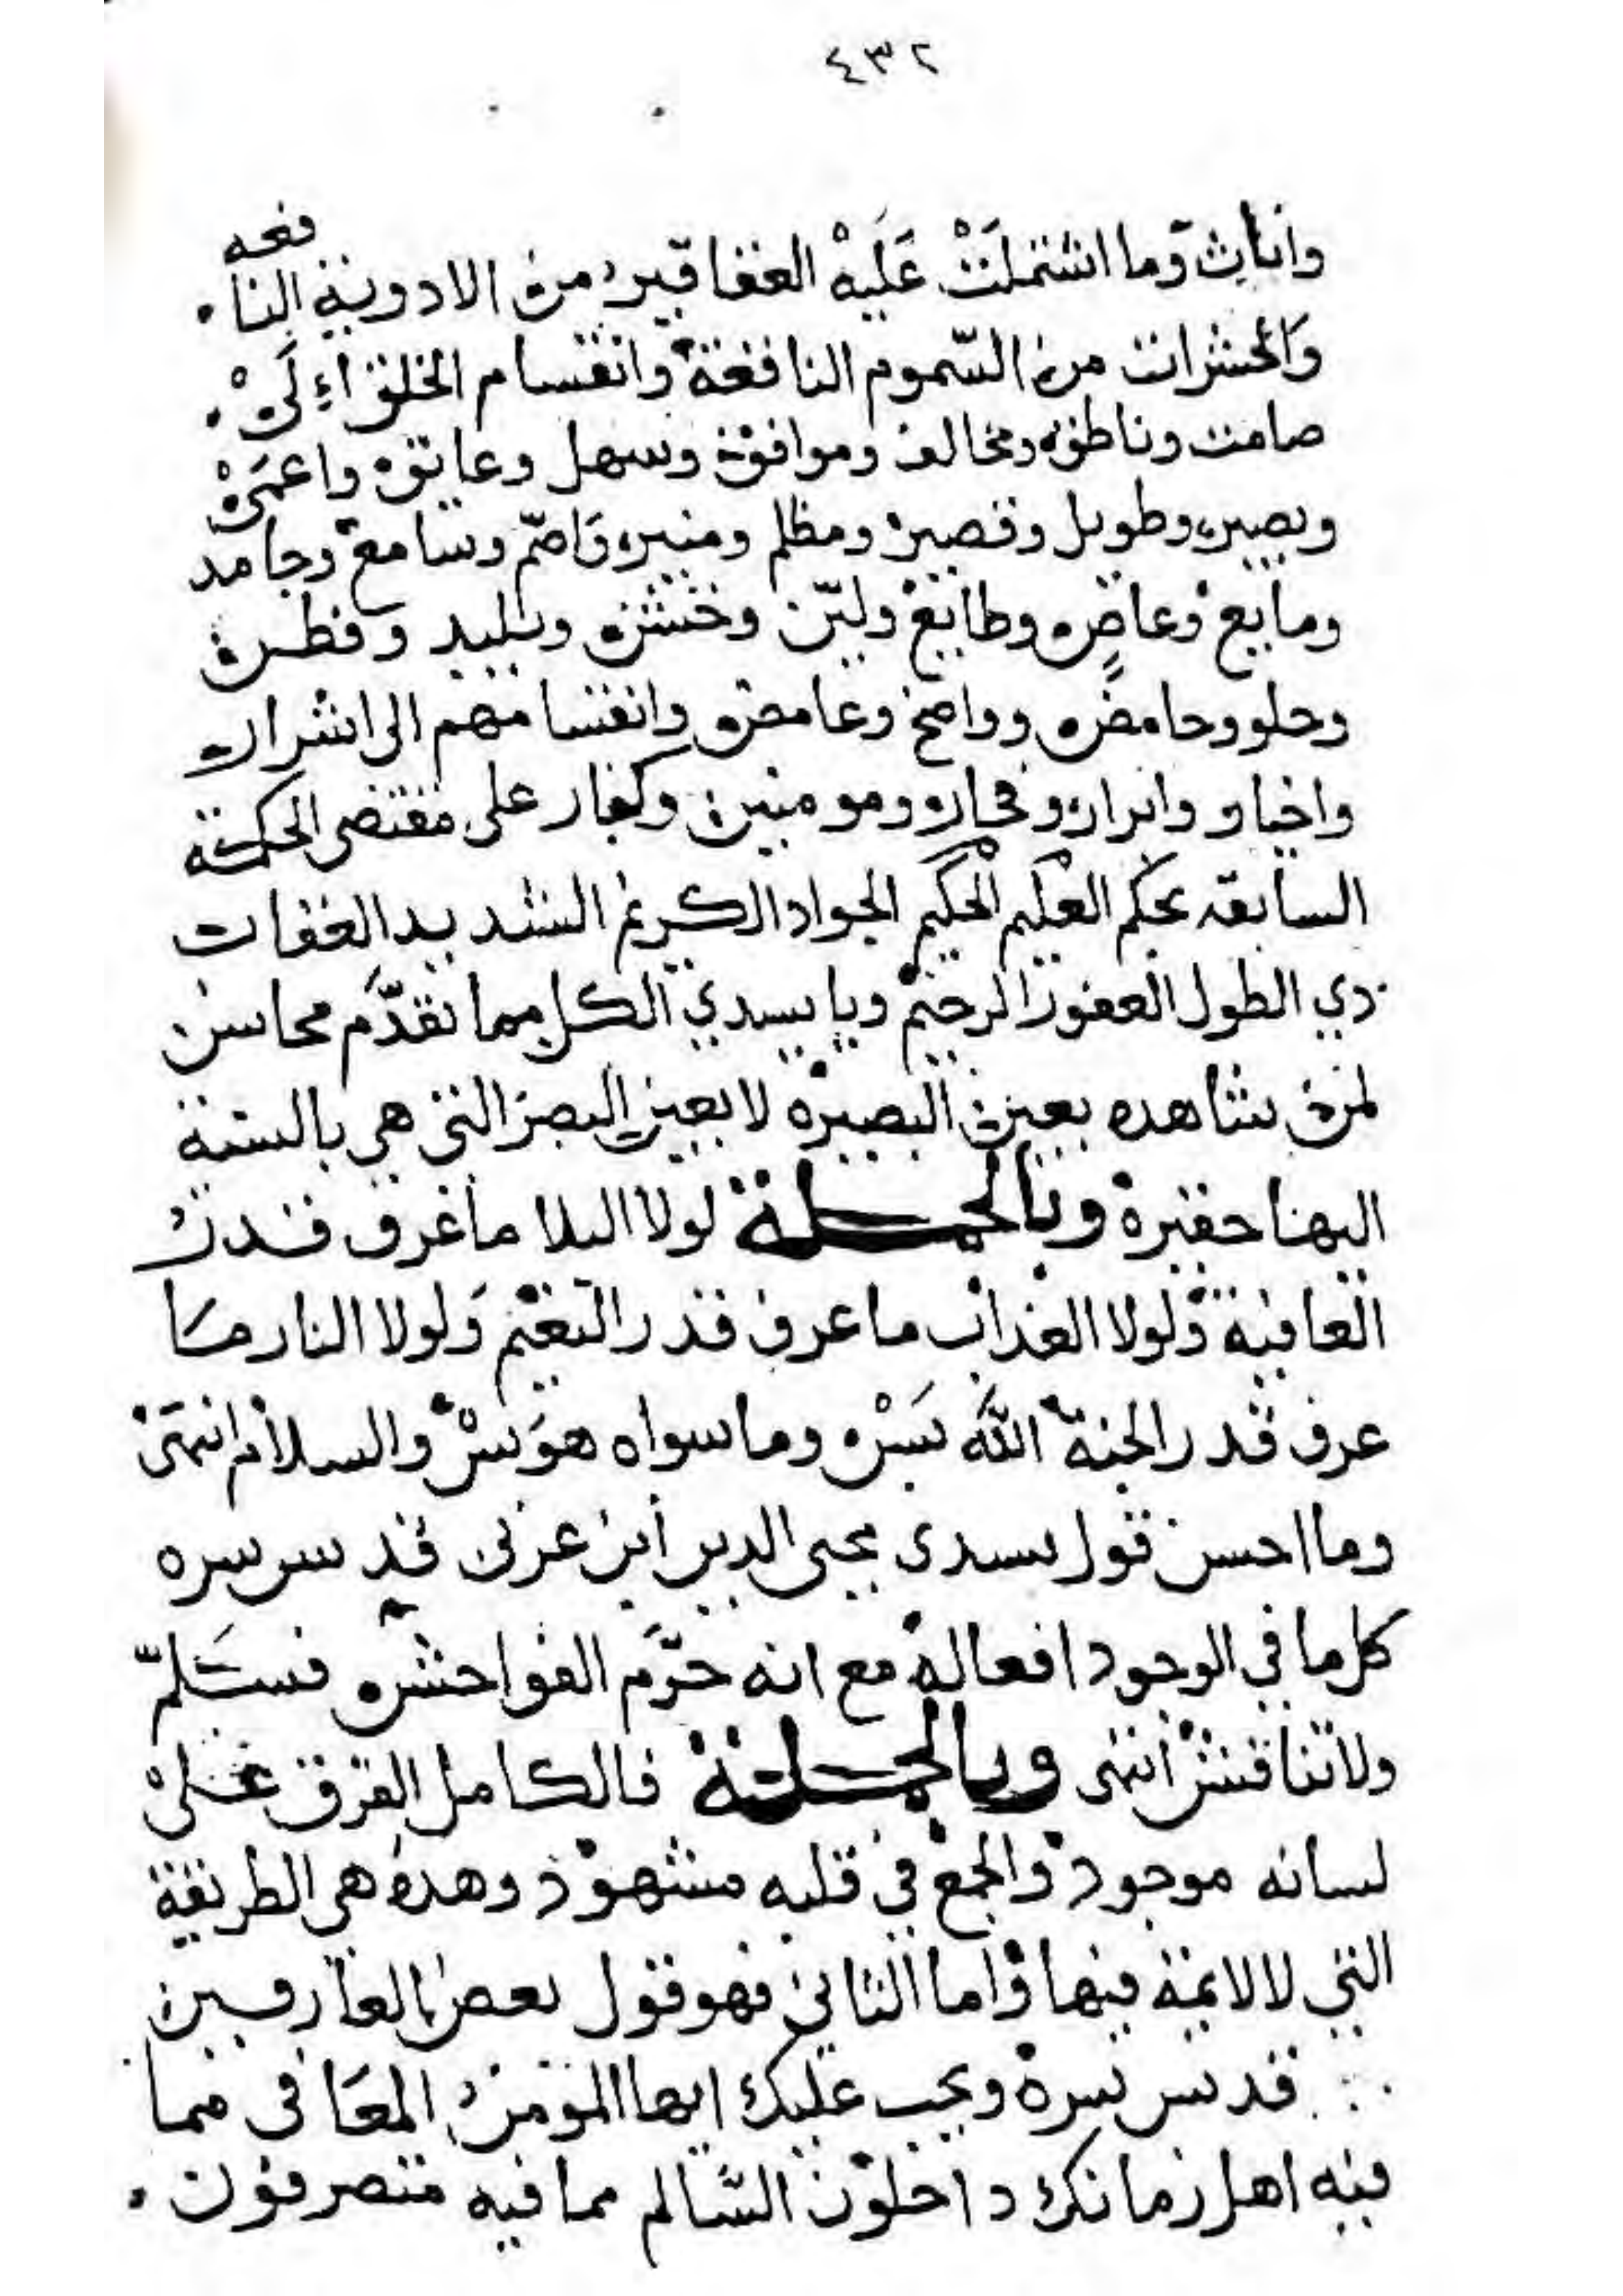 ٤٣٢
وأناث وما اشتملت عليه العقاقير من الادوية النافعه
والحشرات من السّموم الناقعة وانقسام الخلق إلى
صامت وناطق ومخالف وموافق وسهل وعايق واعمى
وبصير وطويل وقصير ومظلم ومنير واصّم وسامع وجامد
ومايع وعاصٍ وطايع وليّن وخشن وبليد وفطن
وحلو وحامض وواضح وغامض وانقسامهم الى اشرار
واخيار وابرار وفجار ومومنين وكفار على مقتضى الحكمته
السابقه بحكم العليم الحكيم الجواد الكريم الشديد العقاب
ذي الطول الغفور الرحيم ويا سيدي الكل مما تقدّم محاسن
لمن شاهده بعين البصيرة لا بعين البصر التي هي بالنسبة
اليها حقيرة وبالجملة لولا البلا ما عرف قدر
العافية ولولا العذاب ما عرف قدر النعيم ولولا النار ما
عرف قدر الجنة الله بس وما سواه هوس والسلام انتهى
وما احسن قول سيدى محيى الدين ابن عربى قدس سره
كل ما في الوجود افعاله مع انه حرّم الفواحش فسلّم
ولا تناقش انتهى وبالجملة فالكامل الفرق على
لسانه موجود والجمع في قلبه مشهود وهذه هي الطريقة
التي لا لائمة فيها واما الثاني فهو قول بعض العارفين
قدس سره ويجب عليك ايها المومن المعافى مما
فيه اهل زمانك داخلون السّالم مما فيه متصرفون